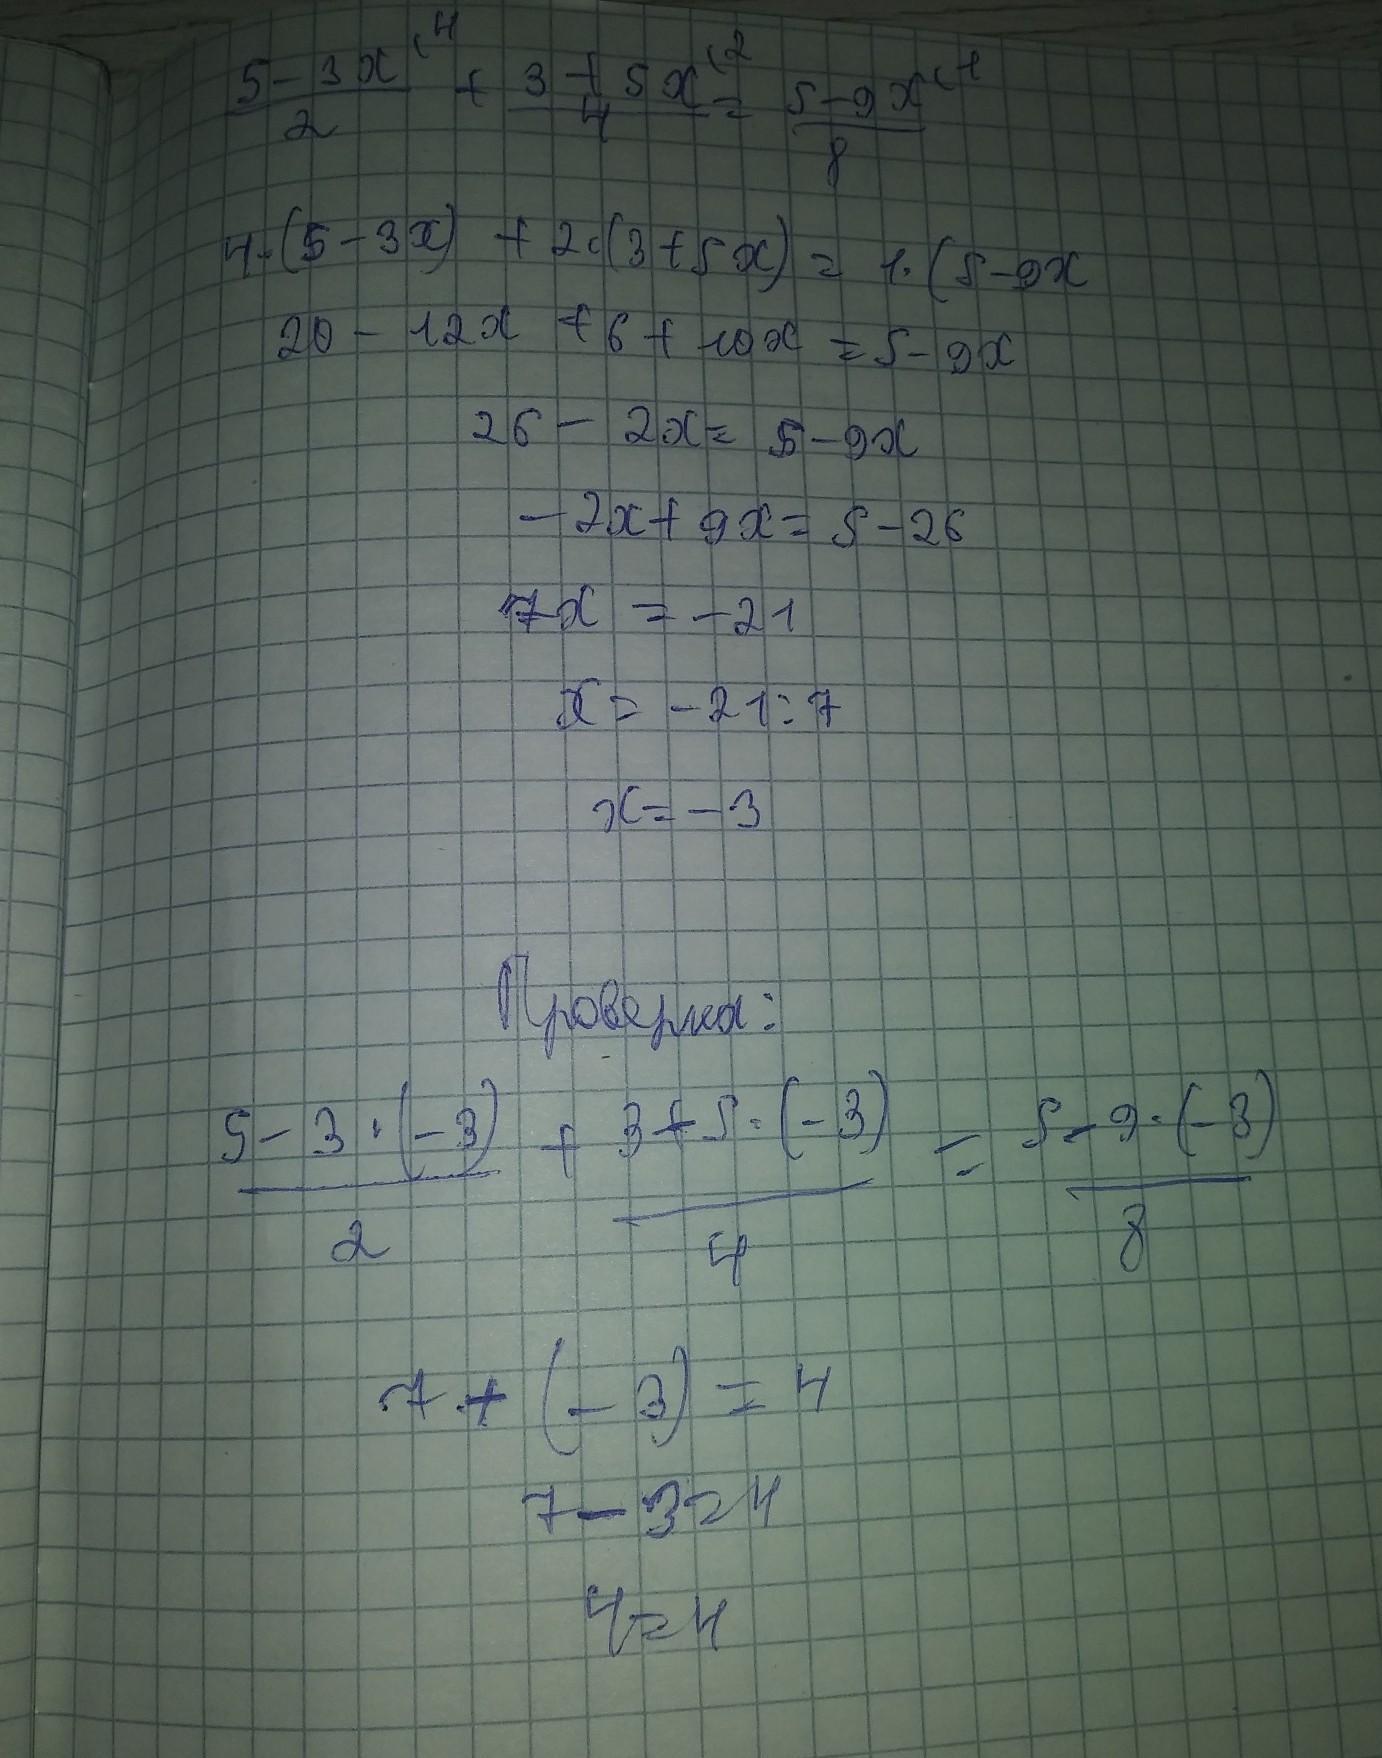 5-3x(4 / 2 + 3+5x(2 / 4 = 5-9x(1 / 8
4·(5-3x) + 2·(3+5x) = 1·(5-9x
20 - 12x + 6 + 10x = 5-9x
26 - 2x = 5-9x
-2x+9x = 5-26
7x = -21
x = -21:7
x = -3
Проверка:
5-3·(-3) / 2 + 3+5·(-3) / 4 = 5-9·(-3) / 8
7 + (-3) = 4
7-3=4
4=4